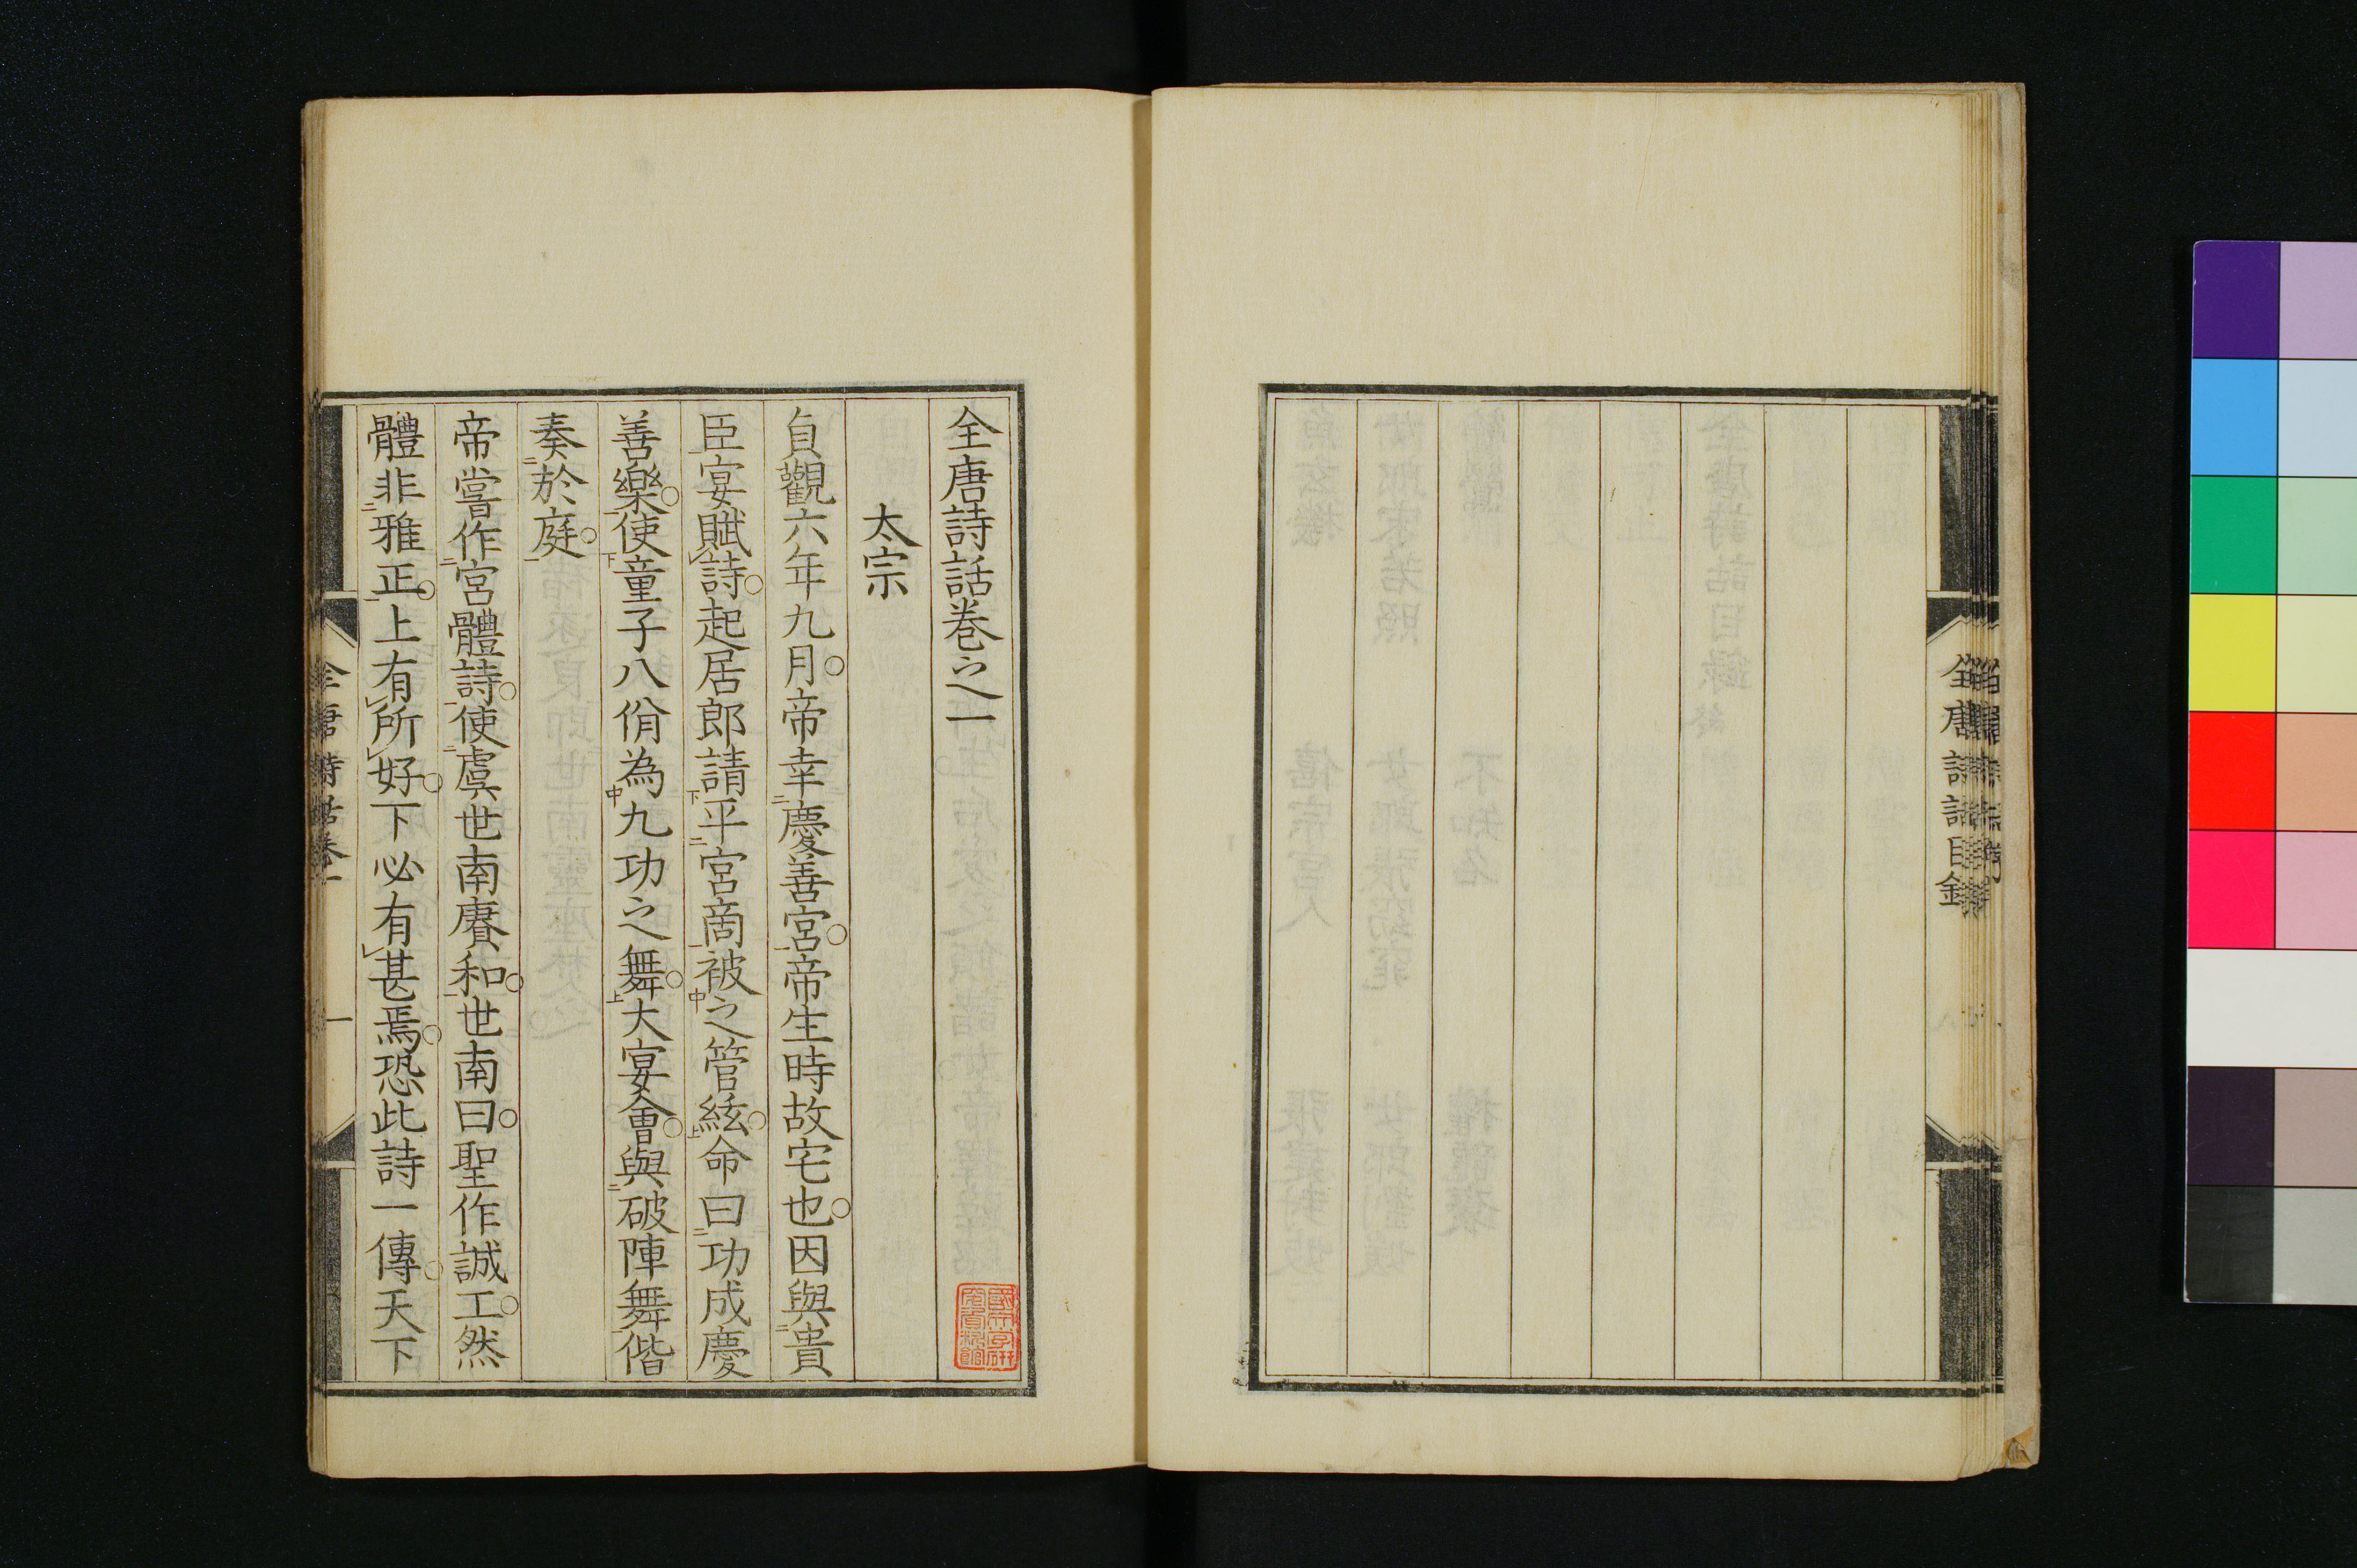 全唐詩話目錄
全唐詩話卷之一
太宗
貞觀六年九月帝幸慶善宮帝生時故宅也因與貴
臣宴賦詩起居郎請平宮商被之管絃命曰功成慶
善樂使童子八佾為九功之舞大宴會與破陣舞偕
奏於庭
帝嘗作宮體詩使虞世南賡和世南曰聖作誠工然
體非雅正上有所好下必有甚焉恐此詩一傳天下
全唐詩話卷一
一